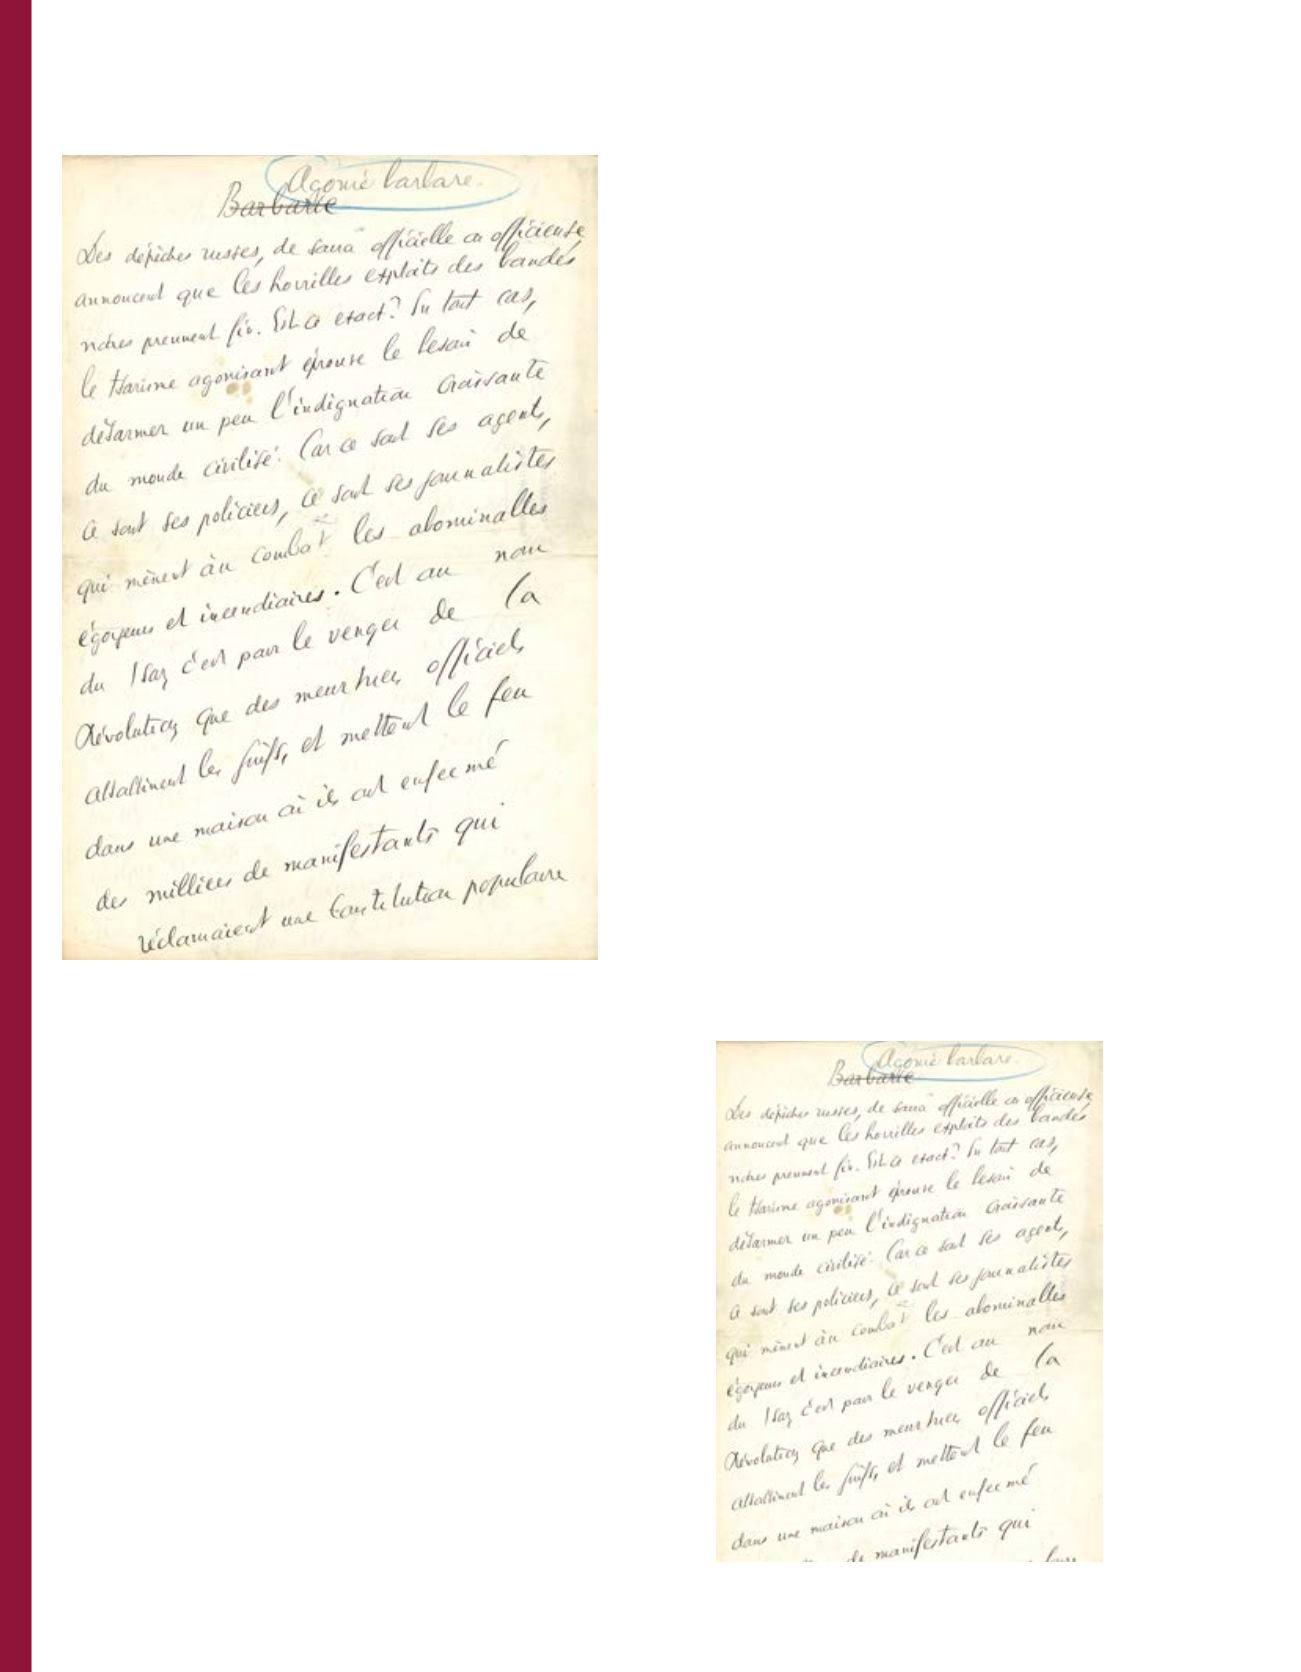 Agonie barbare.
Barbarie
Des dépêches russes, de source officielle ou officieuse
annoncent que les horribles exploits des bandes
noires prennent fin. Est-ce exact? En tout cas,
le tsarisme agonisant éprouve le besoin de
désarmer un peu l'indignation croissante
du monde civilisé. Car ce sont ses agents,
ce sont ses policiers, ce sont ses journalistes
qui mènent au combat les abominables
égorgeurs et incendiaires. C'est au nom
du Tsar, c'est pour le venger de la
Révolution que des meurtriers officiels
assassinent les juifs, et mettent le feu
dans une maison où ils ont enfermé
des milliers de manifestants qui
réclamaient une Constitution populaire
Agonie barbare.
Barbarie
Des dépêches russes, de source officielle ou officieuse
annoncent que les horribles exploits des bandes
noires prennent fin. Est-ce exact? En tout cas,
le tsarisme agonisant éprouve le besoin de
désarmer un peu l'indignation croissante
du monde civilisé. Car ce sont ses agents,
ce sont ses policiers, ce sont ses journalistes
qui mènent au combat les abominables
égorgeurs et incendiaires. C'est au nom
du Tsar, c'est pour le venger de la
Révolution que des meurtriers officiels
assassinent les juifs, et mettent le feu
dans une maison où ils ont enfermé
de manifestants qui